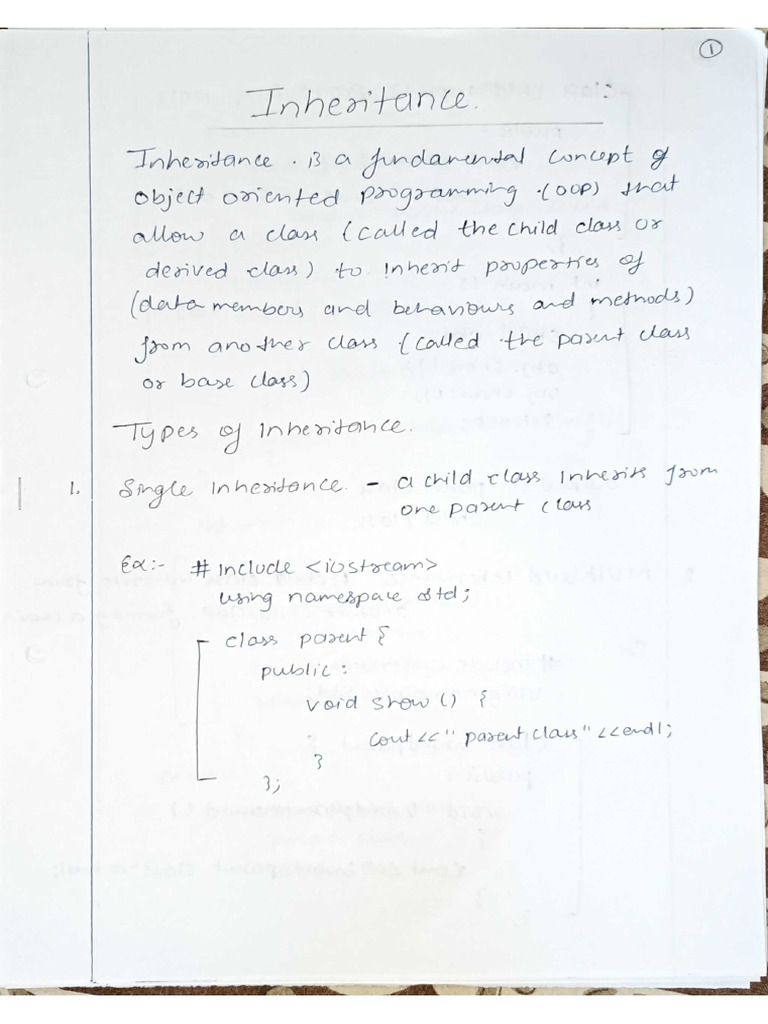 1
Inheritance.
Inheritance is a fundamental concept of
object oriented programming (OOP) that
allow a class (called the child class or
derived class) to inherit properties of
(data members and behaviours and methods)
from another class (called the parent class
or base class)
Types of Inheritance.
1. Single inheritance - a child class inherits from
one parent class
Ex:- #include <iostream>
using namespace std;
class parent {
public:
void show() {
cout << "parent class" << endl;
}
};